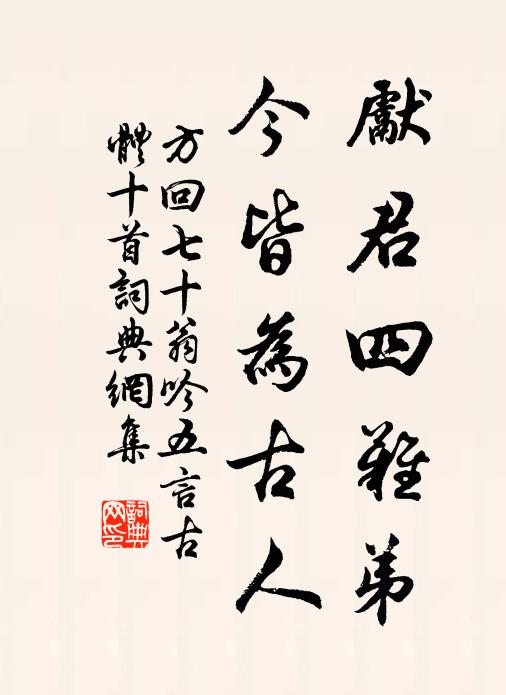 獻君四難弟
今皆為古人
方回七十翁吟五言古
體十首詞典網集
詞典
网印